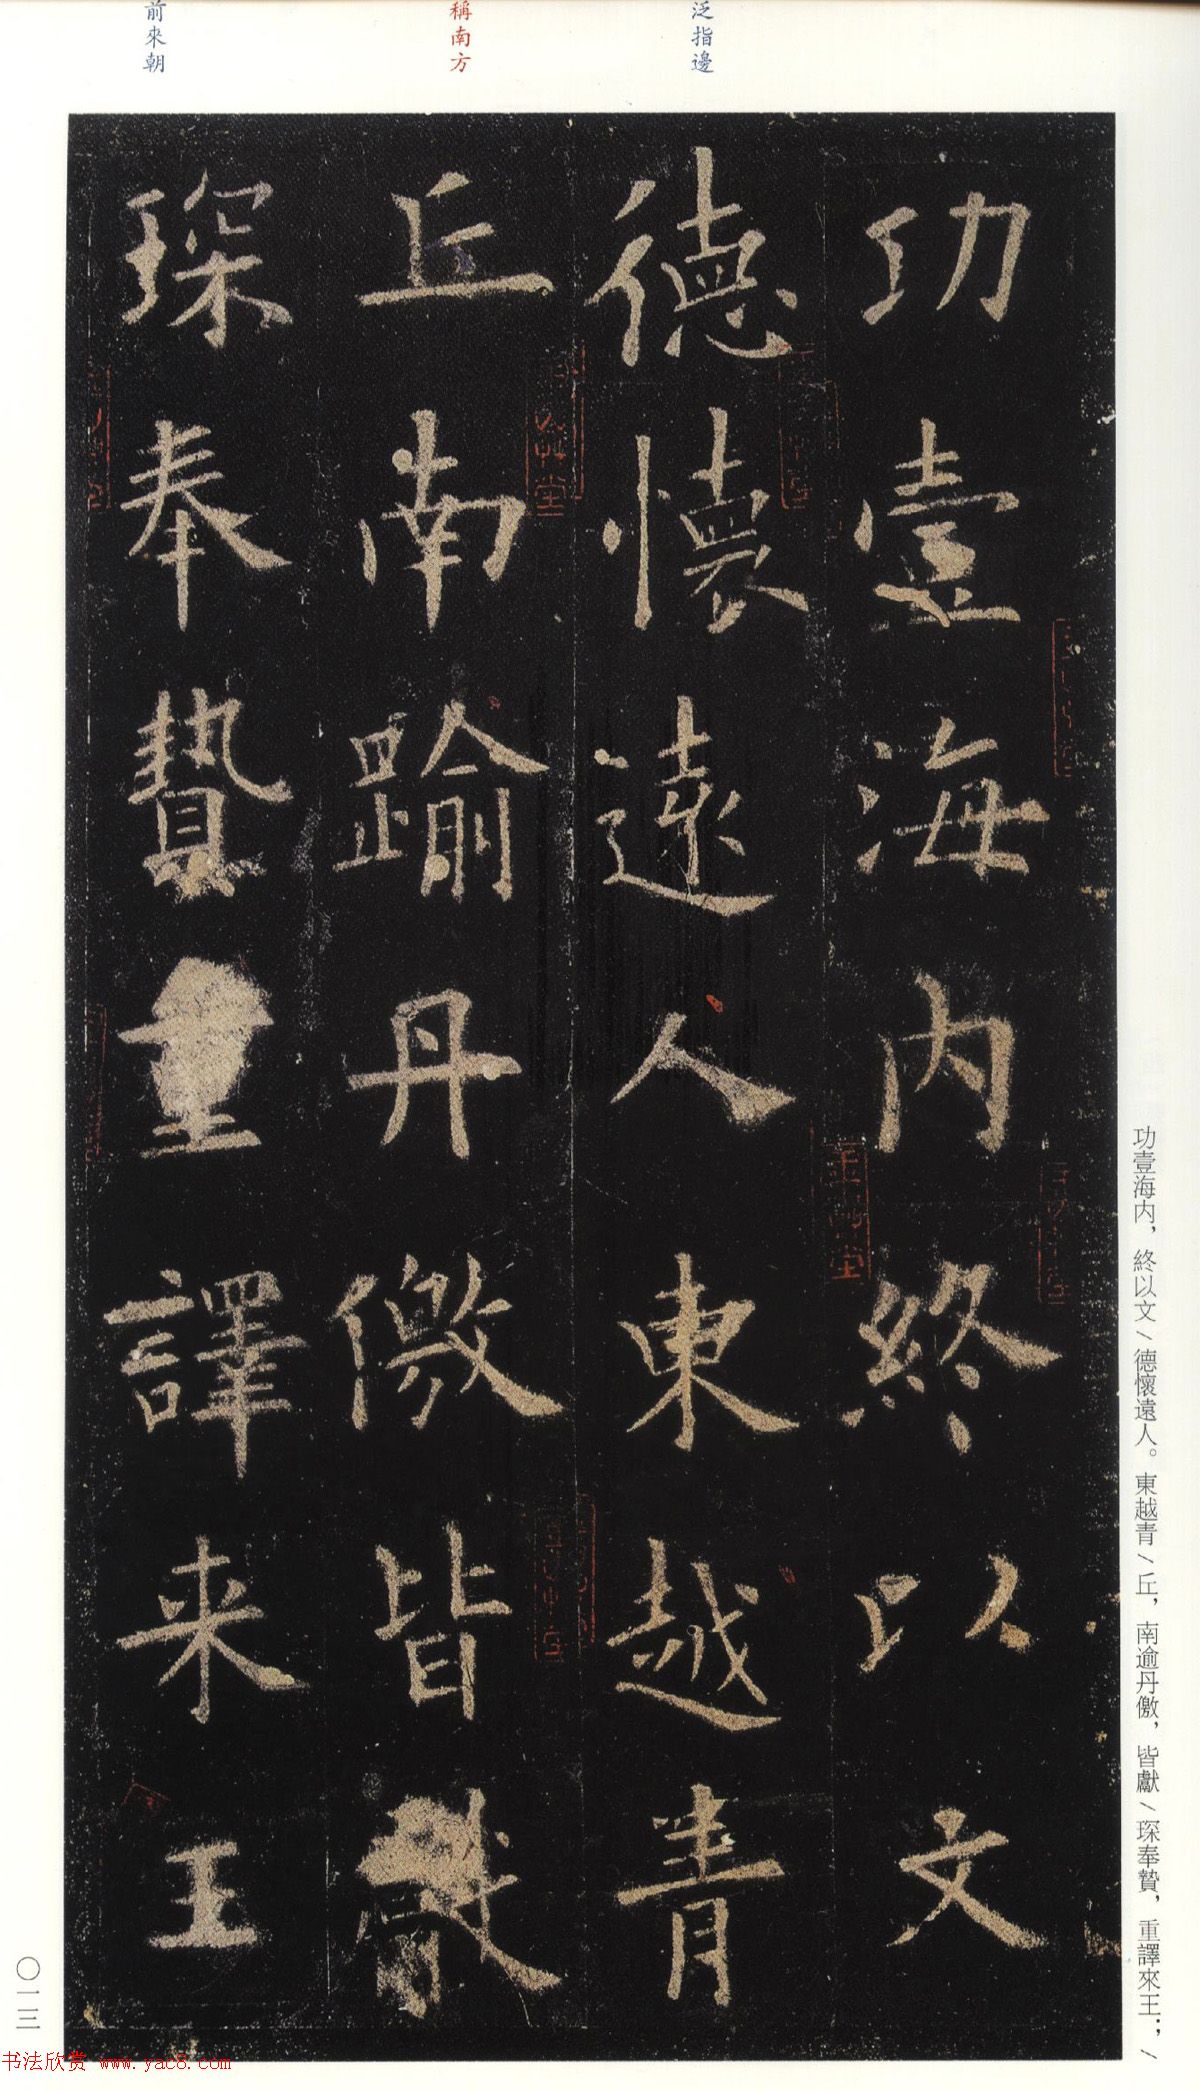 泛指邊
稱南方
前來朝
功壹海内終以文
德懷遠人東越青
丘南踰丹儌皆獻
琛奉贄重譯来王
功壹海内，終以文/德懷遠人。東越青/丘，南逾丹儌，皆獻/琛奉贄，重譯來王；/
〇一三
书法欣赏 www.yac8.com